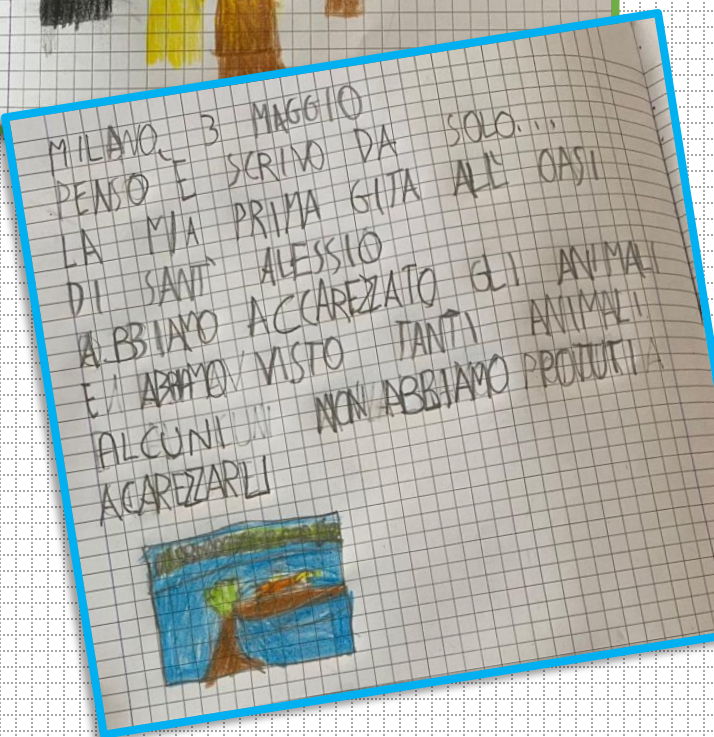 MILANO, 3 MAGGIO
PENSO E SCRIVO DA SOLO...
LA MIA PRIMA GITA ALL' OASI
DI SANT' ALESSIO
ABBIAMO ACCAREZZATO GLI ANIMALI
E ABBIAMO VISTO TANTI ANIMALI.
ALCUNI NON ABBIAMO POTUTI
ACAREZZARLI